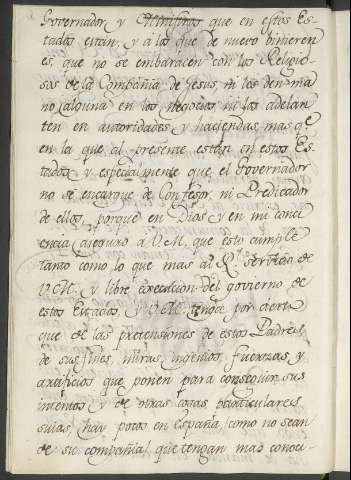 Governador, y Ministros que en estos Es-
tados están, y a los que de nuevo binieren
es, que no se embaracen con los Religio-
sos de la Compañia de Jesus, ni les den ma-
no alguna en los negocios, ni los adelan-
ten en autoridades y haciendas, mas qe.
en la que al presente estan en estos Es-
tados, y especialmente que el Governador
no se encargue de Confesor, ni Predicador
de ellos, porque en Dios y en mi conci-
encia aseguro a V.M. que esto cumple
tanto como lo que mas al Rl. servicio de
V.M. y libre execucion del govierno de
estos Estados, y V.M. tenga por cierto
que de las pretensiones de estos Padres,
de sus fines, miras, ingenios, fuerzas, y
artificios que ponen para conseguir sus
intentos y de otras cosas particulares
suias, hay pocos en España, como no sean
de su compañia, que tengan mas conoci-